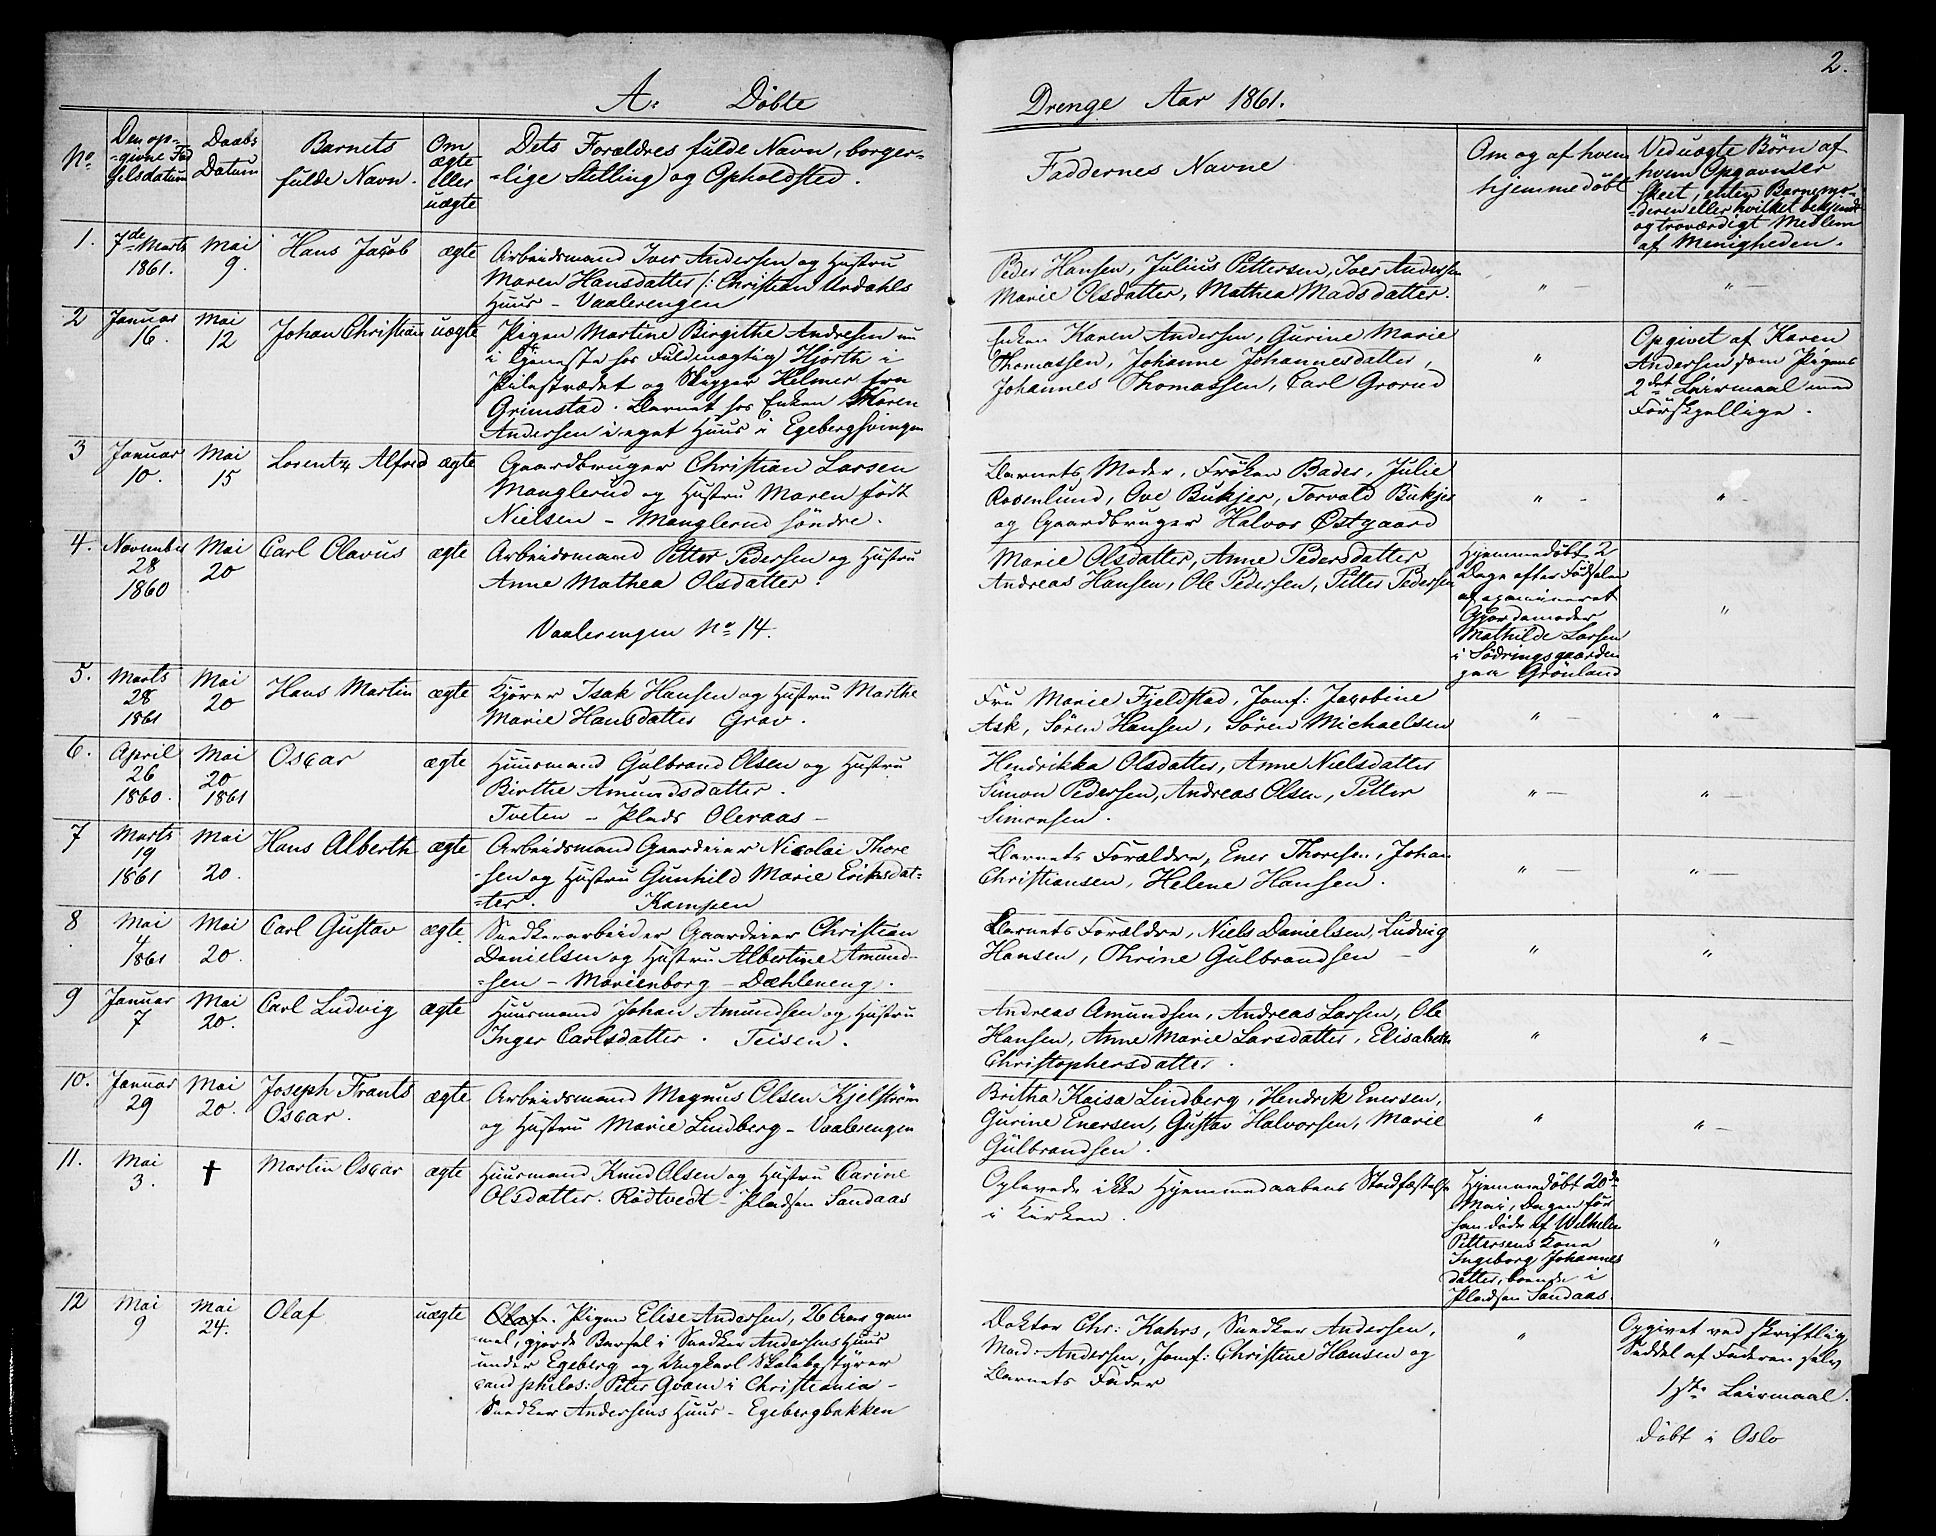 2.
A. Döbte
Drenge Aar 1861.
No.
Den op-
-givne Fød
selsdatum
Daabs
Datum
Barnets
fulde Navn.
Om
ægte
eller
uægte
Dets Forældres fulde Navn, borger-
-lige Stilling og Opholdsted.
Faddernes Navne
Om og af hvem
hjemmedöbt
Ved uægte Børn af
hvem Opgivnder
skeet, enten Barnemo-
-deren eller hvilket bekjendt
og troværdigt Medlem
af Menigheden.
1.
7de Marts
1861.
Mai
9.
Hans Jacob
ægte
Arbeidsmand Iver Andersen og Hustru
Maren Hansdatter /: Christian Ardahls
Huus - Vaalerengen
Peder Hansen, Julius Pettersen, Iver Andersen
Marie Olsdatter, Mathea Madsdatter.
" —
" —
2
Januar
16.
Mai
12
Johan Christian
uægte
Pigen Martine Birgithe Andresen nu
i Tjeneste hos Fuldmægtig Hjorth i
Pilestrædet og Skipper Helmer fra
Grimstad. Barnet hos Enken Karen
Andersen i eget Huus i Egebergsvingen
Enken Karen Andersen, Gurine Marie
Thomassen, Johanne Johannesdatter,
Johannes Thomassen, Carl Grorud
"
Opgivet af Karen
Andersen som Pigens
2det Leirmaal med
Forskjellige.
3
Januar
10.
Mai
15
Lorentz Alfred
ægte
Gaardbruger Christian Larsen
Manglerud og Hustru Maren født
Nielsen - Manglerud söndre.
Barnets Moder, Frøken Bader, Julie
Rosenlund, Ove Bukjer, Torvald Bukjer
og Gaardbruger Halvor Østgaard
" -
" -
4.
November
28
1860
Mai
20
Carl Olavus
ægte
Arbeidsmand Petter Pedersen og Hustru
Anne Mathea Olsdatter.
Vaalerengen No 14.
Marie Olsdatter, Anne Pedersdatter
Andreas Hansen, Ole Pedersen, Petter Pedersen
Hjemmedöbt 2
Dage efter Födselen
af examineret
Gjordemoder
Mathilde Larsen
i Södringsgaarden
paa Grönland
"
5.
Marts
28
1861
Mai
20
Hans Martin
ægte
Kjører Isak Hansen og Hustru Marthe
Marie Hansdatter Grav.
Fru Marie Fjeldstad, Jomf: Jacobine
Ask, Sören Hansen, Sören Michaelsen
" —
" —
6.
April
26
1860.
Mai
20
1861
Oscar
ægte
Huusmand Gulbrand Olsen og Hustru
Birthe Amundsdatter.
Tveten - Plads Oleraas -
Hendrikka Olsdatter, Anne Nielsdatter
Simon Pedersen, Andreas Olsen, Petter
Simensen.
" —
" —
7
Marts
19
1861
Mai
20.
Hans Alberth
ægte
Arbeidsmand Gaardeier Nicolai Thore
-sen og Hustru Gunhild Marie Eriksdat-
-ter. Kampen
Barnets Forældre, Ener Thoresen, Johan
Christiansen, Helene Hansen.
" —
" —
8
Mai
4
1861
Mai
20.
Carl Gustav
ægte.
Snedkerarbeider Gaardeier Christian
Danielsen og Hustru Albertine Amund-
-sen - Marienborg - Dæhleneng.
Barnets Forældre, Niels Danielsen, Ludvig
Hansen, Thrine Gulbrandsen -
"
"
9
Januar
7
Mai
20.
Carl Ludvig
ægte
Huusmand Johan Amundsen og Hustru
Inger Carlsdatter. Teisen.
Andreas Amundsen, Andreas Larsen, Ole
Hansen, Anne Marie Larsdatter, Elisabeth
Christophersdatter.
"
" —
10.
Januar
29
Mai
20.
Joseph Frants
Oscar.
ægte
Arbeidsmand Magnus Olsen Kjelström
og Hustru Marie Lindberg - Vaalerengen
Britha Kaisa Lindberg, Hendrik Enersen,
Gurine Enersen, Gustav Halvorsen, Marie
Gulbrandsen.
"
" —
11.
Mai
3.
†
Martin Oscar
ægte
Huusmand Knud Olsen og Hustru Carine
Olsdatter. Rödtvedt - Pladsen Sandaas
Oplevede ikke Hjemmedaabens Stadfæstelse
i Kirken.
Hjemmedöbt 20de
Mai, Dagen før
han döde af Wilhelm
Pettersens Kone
Ingeborg Johannes
datter, boende i
Pladsen Sandaas.
"
12
Mai
9
Mai
24.
Olaf
uægte
Olaf. Pigen Elise Andersen, 26 Aar gam
-mel, gjorde Barsel i Snedker Andersens Huus
under Egeberg og Ungkarl Skolebestyrer
cand philos: Peter Qvam i Christiania -
Snedker Andersens Huus - Egebergbakken
Doktor Chr: Kahrs, Snedker Andersen,
Mad: Andersen, Jomf: Christine Hansen og
Barnets Fader
"
Opgivet ved skriftlig
Seddel af Faderen selv
1ste Leirmaal.
döbt i Oslo